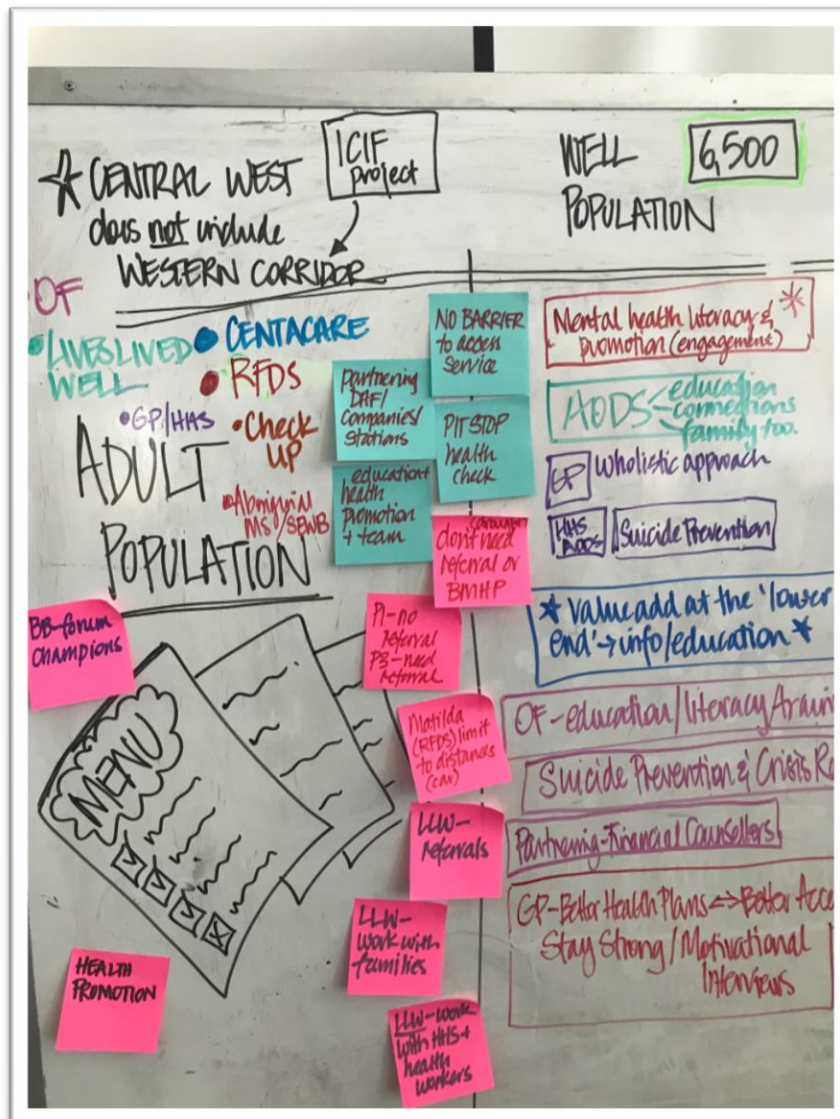 ☆ CENTRAL WEST
does not include
WESTERN CORRIDOR
ICIF
project
WELL
POPULATION
6,500
OF
LIVES LIVED
WELL
CENTACARE
RFDS
GP/HHS
Check
UP
Aboriginal
MS/SEWB
ADULT
POPULATION
NO BARRIER
to access
service
Partnering
DAF/
Companies/
stations
PIT STOP
health
check
education +
health
promotion
+ team
don't need
referral or
BMHP
BB-forum
Champions
P1-no
referral
P3-need
referral
Matilda
(RFDS) limit
to distances
(car)
LLW-
referrals
LLW-
work with
families
LLW-work
with HHS+
health
workers
MENU
HEALTH
PROMOTION
Mental health literacy &
promotion (engagement)
AODS
education
connections
family too.
GP
Wholistic approach
HHS
AODS
Suicide Prevention
* Value add at the 'lower
end' → info/education *
OF-education/literacy/
Suicide Prevention & Crisis
Partnering-Financial Counsellors
GP-Better Health Plans ↔ Better
Stay Strong/Motivational
Interviews